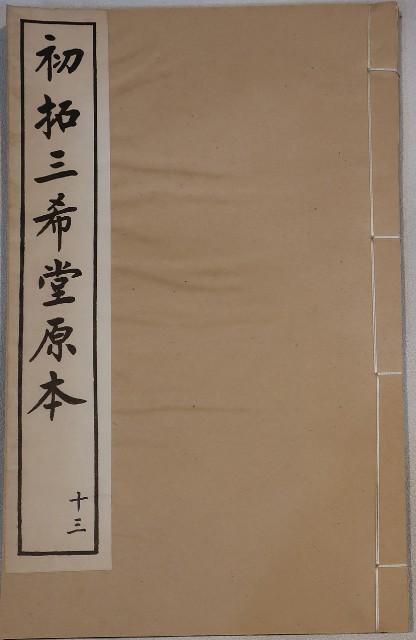 初拓三希堂原本
十三